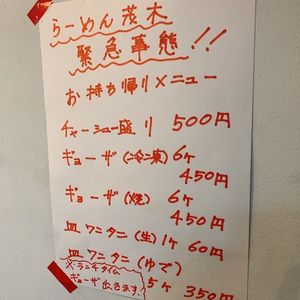 らーめん 茂木
緊急事態!!
お持ち帰りメニュー
チャーシュー盛り 500円
ギョーザ(冷凍) 6ヶ
450円
ギョーザ(焼) 6ヶ
450円
皿ワンタン(生) 1ヶ 60円
皿ワンタン(ゆで)
5ヶ 350円
※ランチタイム
ギョーザ出きます。